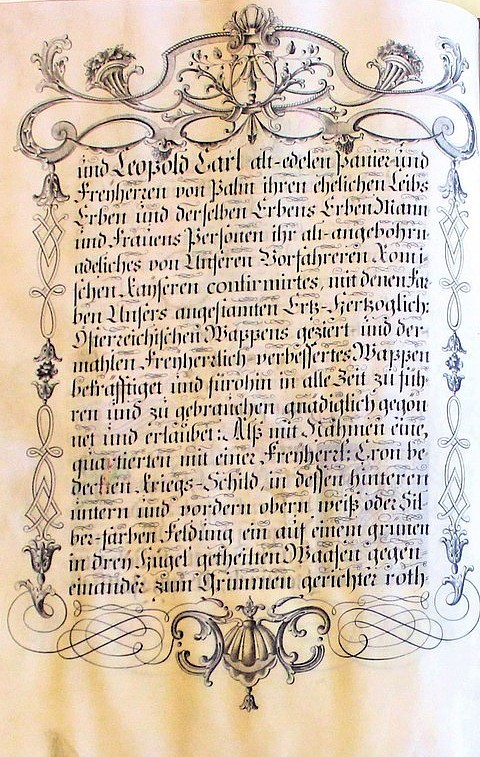 und Leopold Carl alt-edelen Panier-und
Freyherren von Palm ihren ehelichen Leibs
Erben und derselben Erbens Erben Mann
und Frauens Persohnen ihr alt-angebohrn
adeliches von Unseren Vorfahreren Römi-
schen Kayseren confirmirtes, mit denen Far-
ben Unsers angestamten Ertz-Hertzoglich:
Österreichischen Wappens geziert- und der-
mahlen Freyherrlich-verbessertes Wappen
bekräfftiget und fürohin in alle Zeit zu füh-
ren und zu gebrauchen gnädiglich gegön-
net und erlaubet: Alß mit Nahmen eine,
quartierten mit einer Freyherrl: Cron be-
deckten Kriegs-Schild, in dessen hinteren
untern und vordern obern weiß oder Sil-
ber-farben Feldung ein auf einem grünen
in drey Hügel getheilten Waasen gegen
einander zum Grimmen gerichter roth